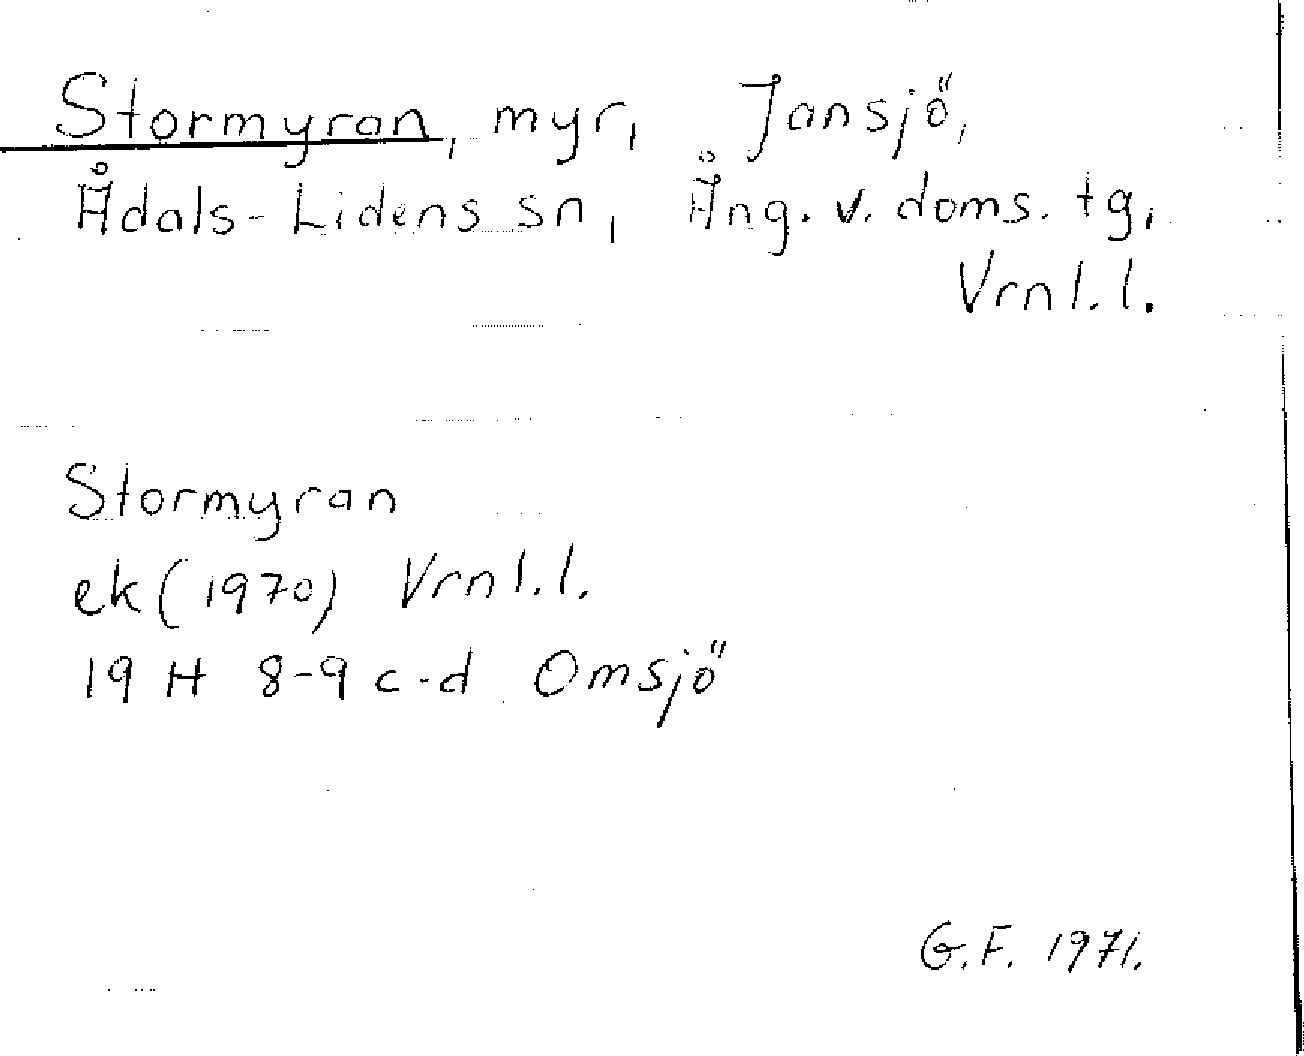 Stormyran, myr, Jansjö,
Ådals-Lidens sn, Ång. v. doms. tg,
Vrnl.l.
Stormyran
ek (1970) Vrnl.l.
19 H 8-9 c-d Omsjö
G.F. 1971.